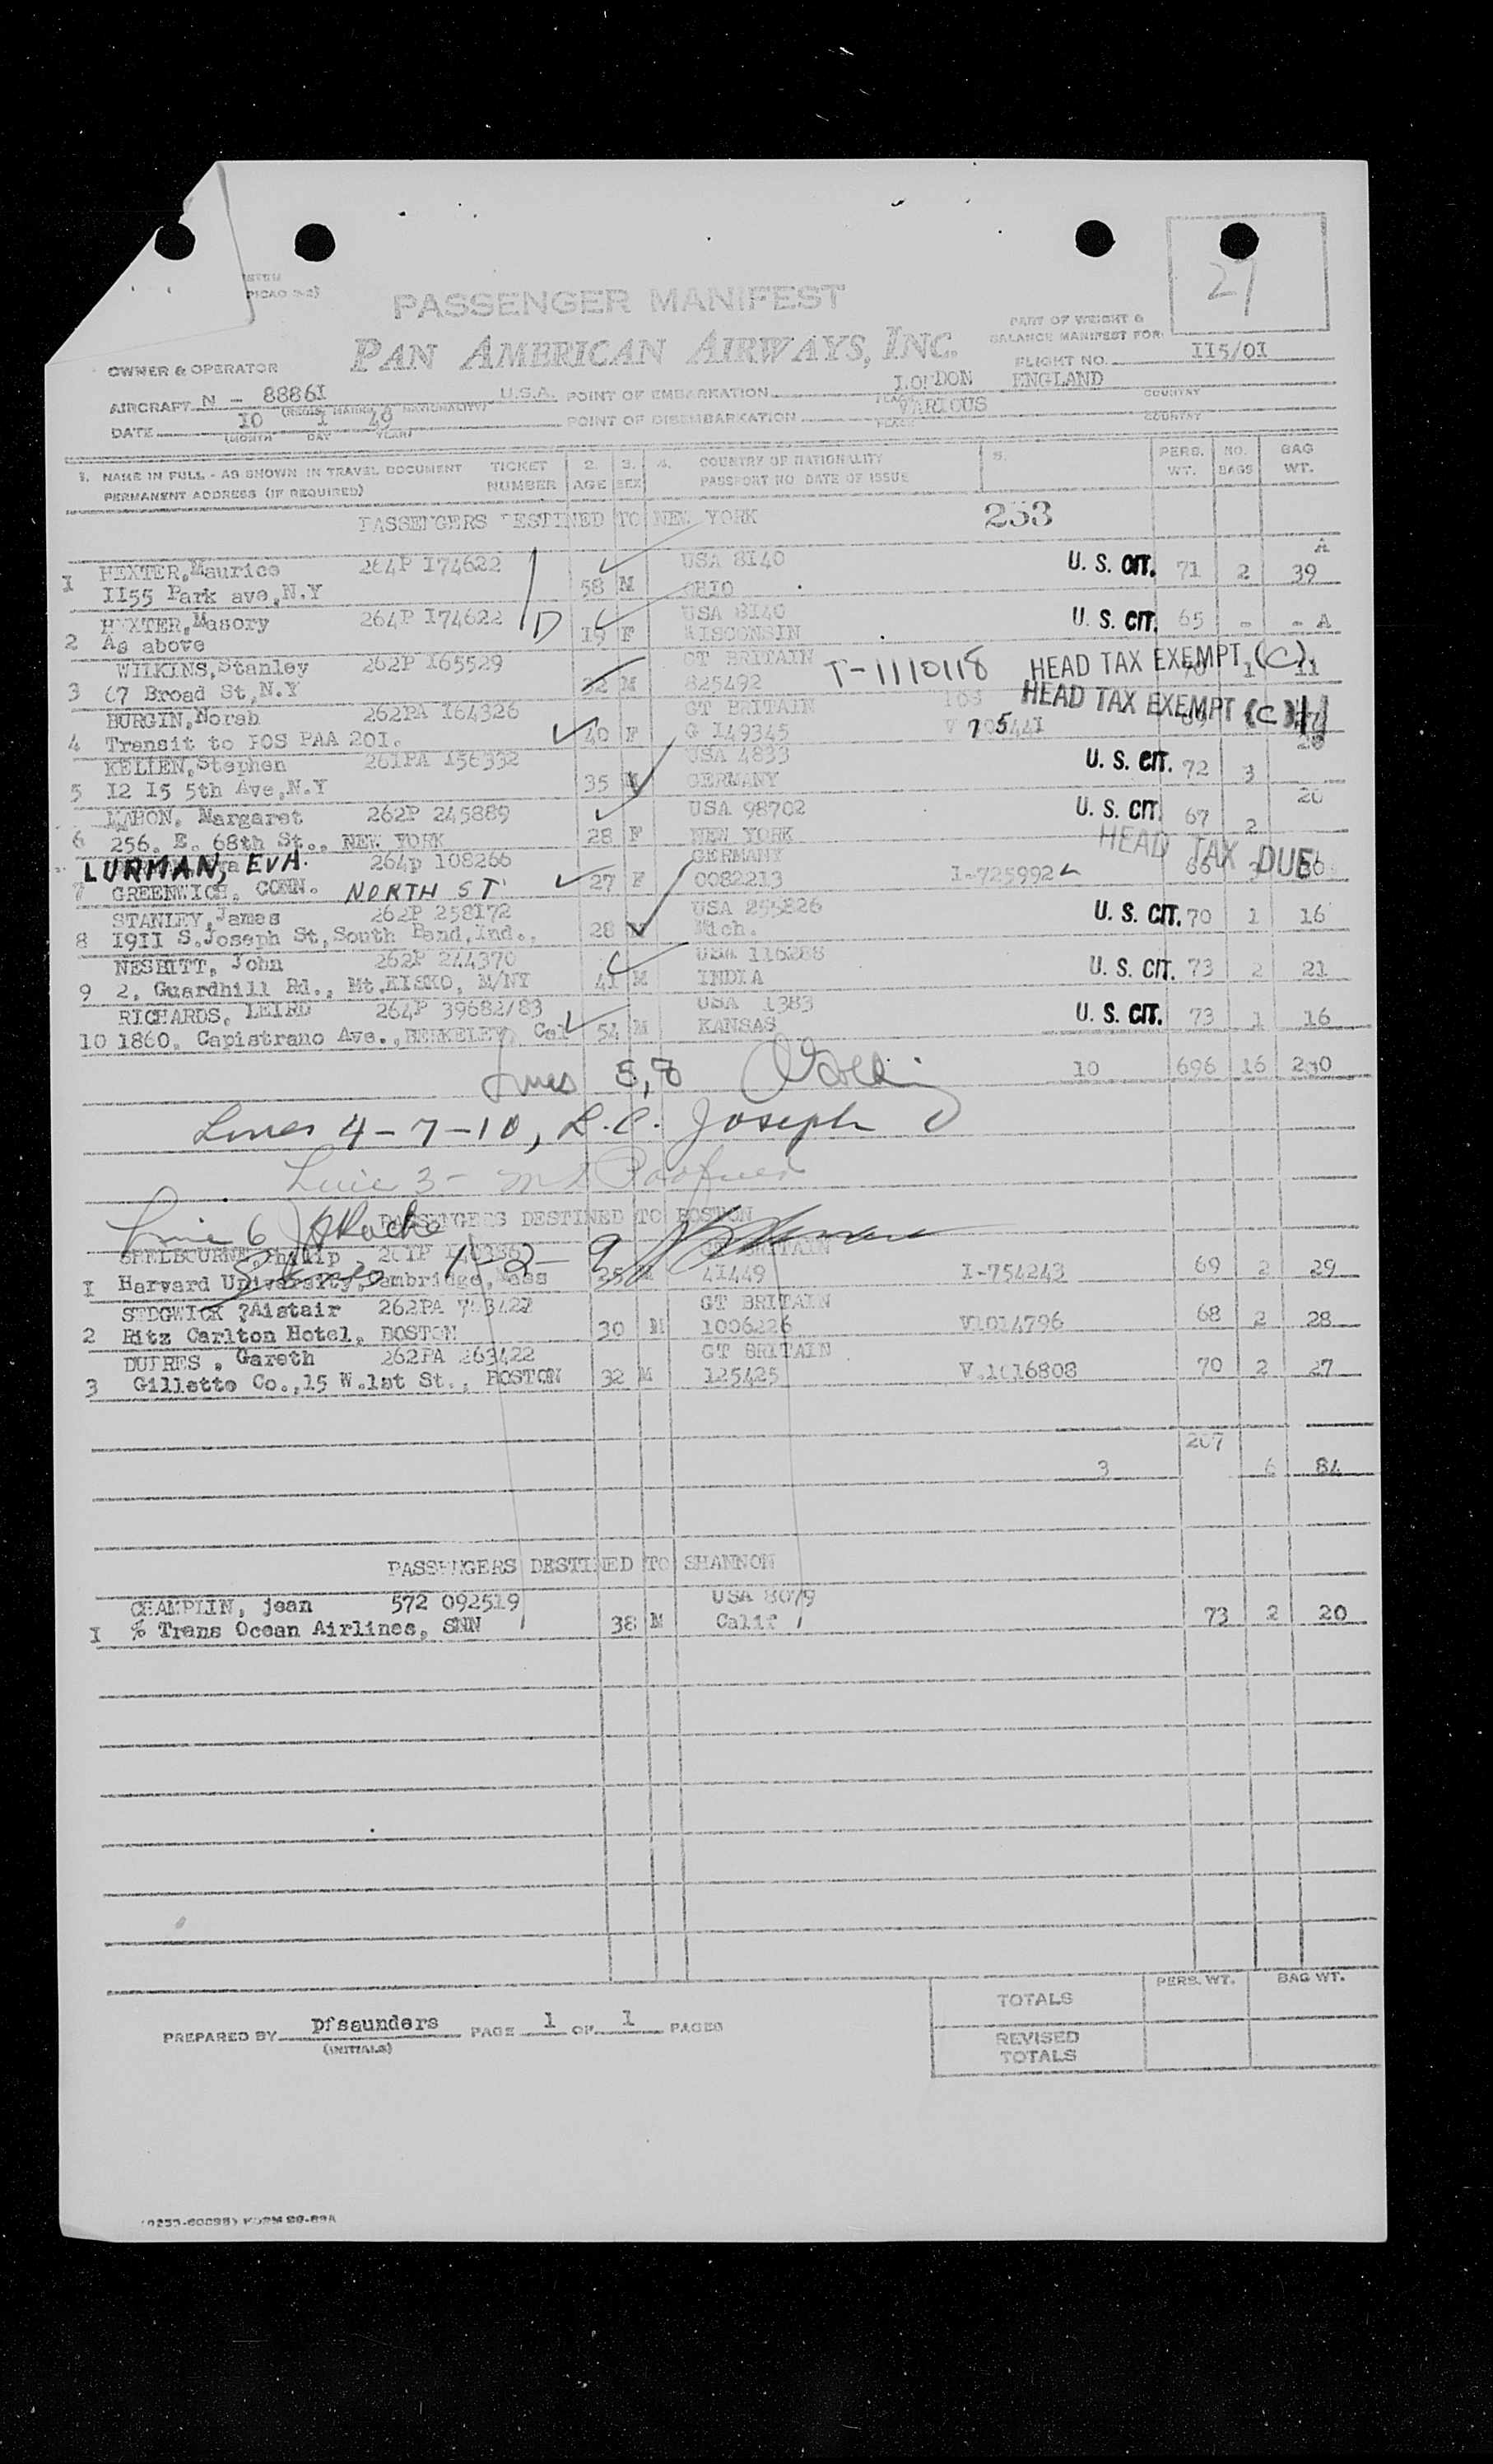 (ICAO 9-2)
27
PASSENGER MANIFEST
PART OF WEIGHT &
BALANCE MANIFEST FOR
PAN AMERICAN AIRWAYS, INC.
OWNER & OPERATOR
FLIGHT NO. 115/01
AIRCRAFT N - 88861 U.S.A. POINT OF EMBARKATION LONDON ENGLAND
(REGIS. MARKS & NATIONALITY) PLACE COUNTRY
DATE 10 1 49 POINT OF DISEMBARKATION VARIOUS
(MONTH DAY YEAR) PLACE COUNTRY
1. NAME IN FULL - AS SHOWN IN TRAVEL DOCUMENT TICKET 2. 3. 4. COUNTRY OF NATIONALITY 5. PERS. NO. BAG
PERMANENT ADDRESS (IF REQUIRED) NUMBER AGE SEX PASSPORT NO DATE OF ISSUE WT. BAGS WT.
PASSENGERS DESTINED TO NEW YORK 253
HEXTER, Maurice 264P I74622 USA 8I40 A
1 II55 Park ave, N.Y 58 M OHIO U. S. CIT. 71 2 39
HEXTER, Masory 264P I74622 D USA 8I40
2 As above 19 F WISCONSIN U. S. CIT. 65 - - A
WILKINS, Stanley 262P I65529 GT BRITAIN T-1110118 HEAD TAX EXEMPT (C)
3 67 Broad St, N.Y 32 M 825492 1 11
BURGIN, Norah 262PA I64326 GT BRITAIN HEAD TAX EXEMPT (C)
4 Transit to BOS PAA 20I. 40 F G I49345
KELLEN, Stephen 26IPA I56332 USA 4833
5 I2 I5 5th Ave, N.Y 35 M GERMANY U. S. CIT. 72 3
MAHON, Margaret 262P 245889 USA 98702 20
6 256, E. 68th St., NEW YORK 28 F NEW YORK U. S. CIT. 67 2
LURMAN, EVA. 264p 108266 GERMANY HEAD TAX DUE
7 GREENWICH, CONN. NORTH ST 27 F 0082213 I-725992 66
STANLEY, James 262P 258I72 USA 255826
8 I9II S. Joseph St, South Bend, Ind., 28 M Mich. U. S. CIT. 70 1 16
NESBITT, John 262P 244370 USA 116288
9 2, Guardhill Rd., Mt. KISKO, M/NY 41 M INDIA U. S. CIT. 73 2 21
RICHARDS, LEIRD 264P 39682/83 USA 1383
10 1860, Capistrano Ave., BERKELEY, Cal 54 M KANSAS U. S. CIT. 73 1 16
Lines 5, 8 10 696 16
Lines 4-7-10, L.C. Joseph
Line 3-
Line 6 PASSENGERS DESTINED TO BOSTON
SHELBOURNE, Philip 1-2-9 GT BRITAIN
I Harvard University, Cambridge, Mass 25 M 4I449 I-754243 69 2 29
SEDGWICK ?Alstair 262PA GT BRITAIN
2 Ritz Carlton Hotel, BOSTON 30 M 1006226 V1014796 68 2 28
DUTRES, Gareth 262PA 263422 GT BRITAIN
3 Gillette Co., 15 W. 1st St., BOSTON 32 M 125425 V.1016808 70 2 27
207
3 6 84
PASSENGERS DESTINED TO SHANNON
CHAMPLIN, jean 572 092519 USA 8079
I % Trans Ocean Airlines, SNN 38 M Calif 73 2 20
PERS. WT. BAG WT.
TOTALS
PREPARED BY pfsaunders PAGE 1 OF 1 PAGES
(INITIALS)
REVISED
TOTALS